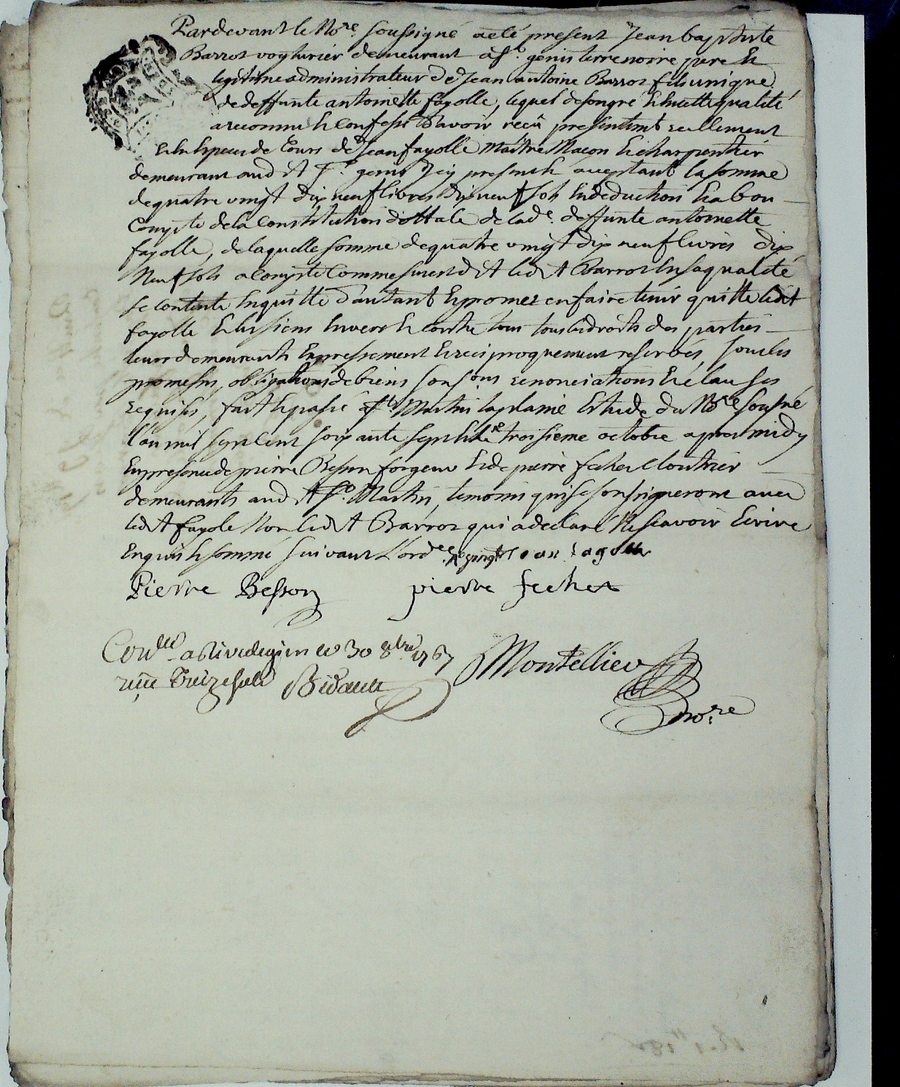 Pardevant le No.re soussigné a eté present Jean baptiste
Barrot voyturier demeurant a S.t genis terrenoire pere et
legitime administrateur de Jean antoine Barrot fils unique
de deffunte antoinette fayolle, lequel de son gré et en cette qualité
a reconnu et confessé d'avoir reçu presentement reellement
et en especes de Cours de Jean fayolle Maitre Maçon et charpentier
demeurant aud.t S.t genis Icy present et acceptant la somme
de quatre vingt dix neuf livres dix neuf sols En deduction et a bon
Compte de la Constitution dottale de lad.e deffunte antoinette
fayolle, de laquelle somme de quatre vingt dix neuf livres dix
Neuf sols a Compte Comme led.t Barrot En sa qualité
se contente En quitte d'autant et promet en faire tenir quitte led.t
fayolle et les siens Envers et contre tous tous les droits des parties
leurs demeurants Expressement et reciproquement reservés, sous les
promesses, obligations de biens renonciations et clauses
requises, fait et passé a S.t Martin la plaine Etude du No.re sousné
L'an mil sept cent soixante sept et le troisieme octobre apres midy
En presence de pierre Besson forgeur et de pierre fechet Cloutier
demeurants aud.t S.t Martin, temoins qui se sont signeront avec
led.t fayole Non led.t Barrot qui a declaré Ne scavoir Ecrire
Enquis et sommé suivant L'ord.ce
Pierre Besson pierre fechet
Con.llé a Rivedegier le 30 8bre 1767
reçu treize sols
Montellier
no.re